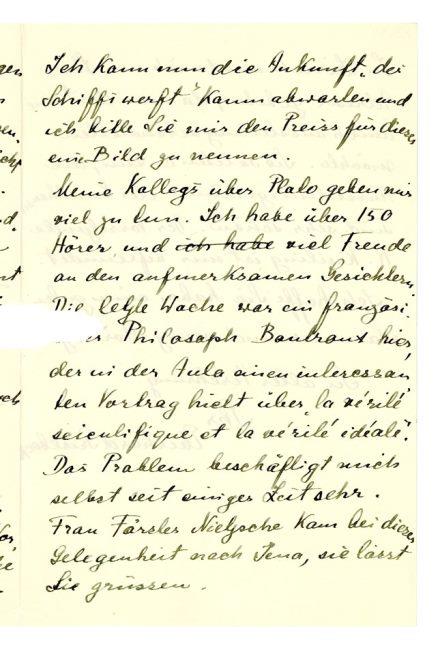 Ich kann nun die Ankunft „der
Schiffswerft“ kaum abwarten und
ich bitte Sie mir den Preiss für dieses
eine Bild zu nennen.
Meine Kollegs über Plato geben mir
viel zu tun. Ich habe über 150
Hörer und ich habe viel Freude
an den aufmerksamen Gesichtern.
Die letzte Woche war ein französi-
Philosoph Boutroux hier,
der in der Aula einen interessan
ten Vortrag hielt über „la vérité
scientifique et la vérité idéale“.
Das Problem beschäftigt mich
selbst seit einiger Zeit sehr.
Frau Förster Nietzsche kam bei dieser
Gelegenheit nach Jena, sie lässt
Sie grüssen.